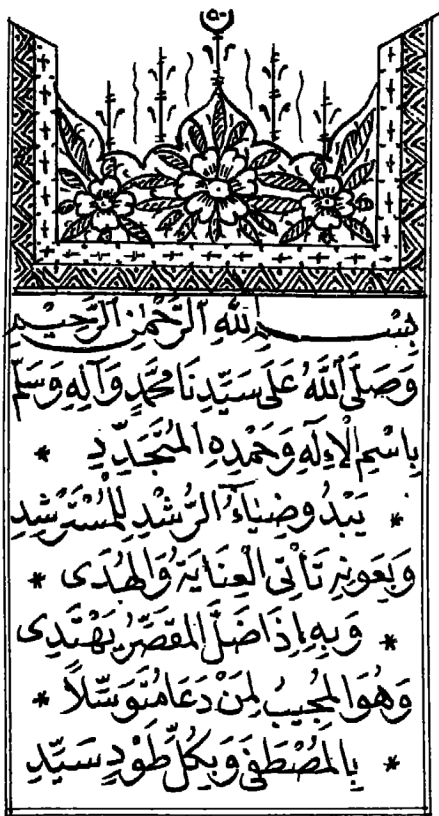 بِسْمِ اللَّهِ الرَّحْمَٰنِ الرَّحِيمِ
وَصَلَّى اللَّهُ عَلَى سَيِّدِنَا مُحَمَّدٍ وَآلِهِ وَسَلَّمَ
بِاسْمِ الْإِلَهِ وَحَمْدِهِ الْمُتَجَدِّدِ *
* يَبْدُو ضِيَاءُ الرُّشْدِ لِلْمُسْتَرْشِدِ
وَبِعَوْنِهِ تَأْتِى الْعِنَايَةُ وَالْهُدَى *
* وَبِهِ إِذَا ضَلَّ الْمُقَصِّرُ يَهْتَدِى
وَهُوَ الْمُجِيبُ لِمَنْ دَعَا مُتَوَسِّلًا *
* بِالْمُصْطَفَى وَبِكُلِّ طَوْدٍ سَيِّدِ